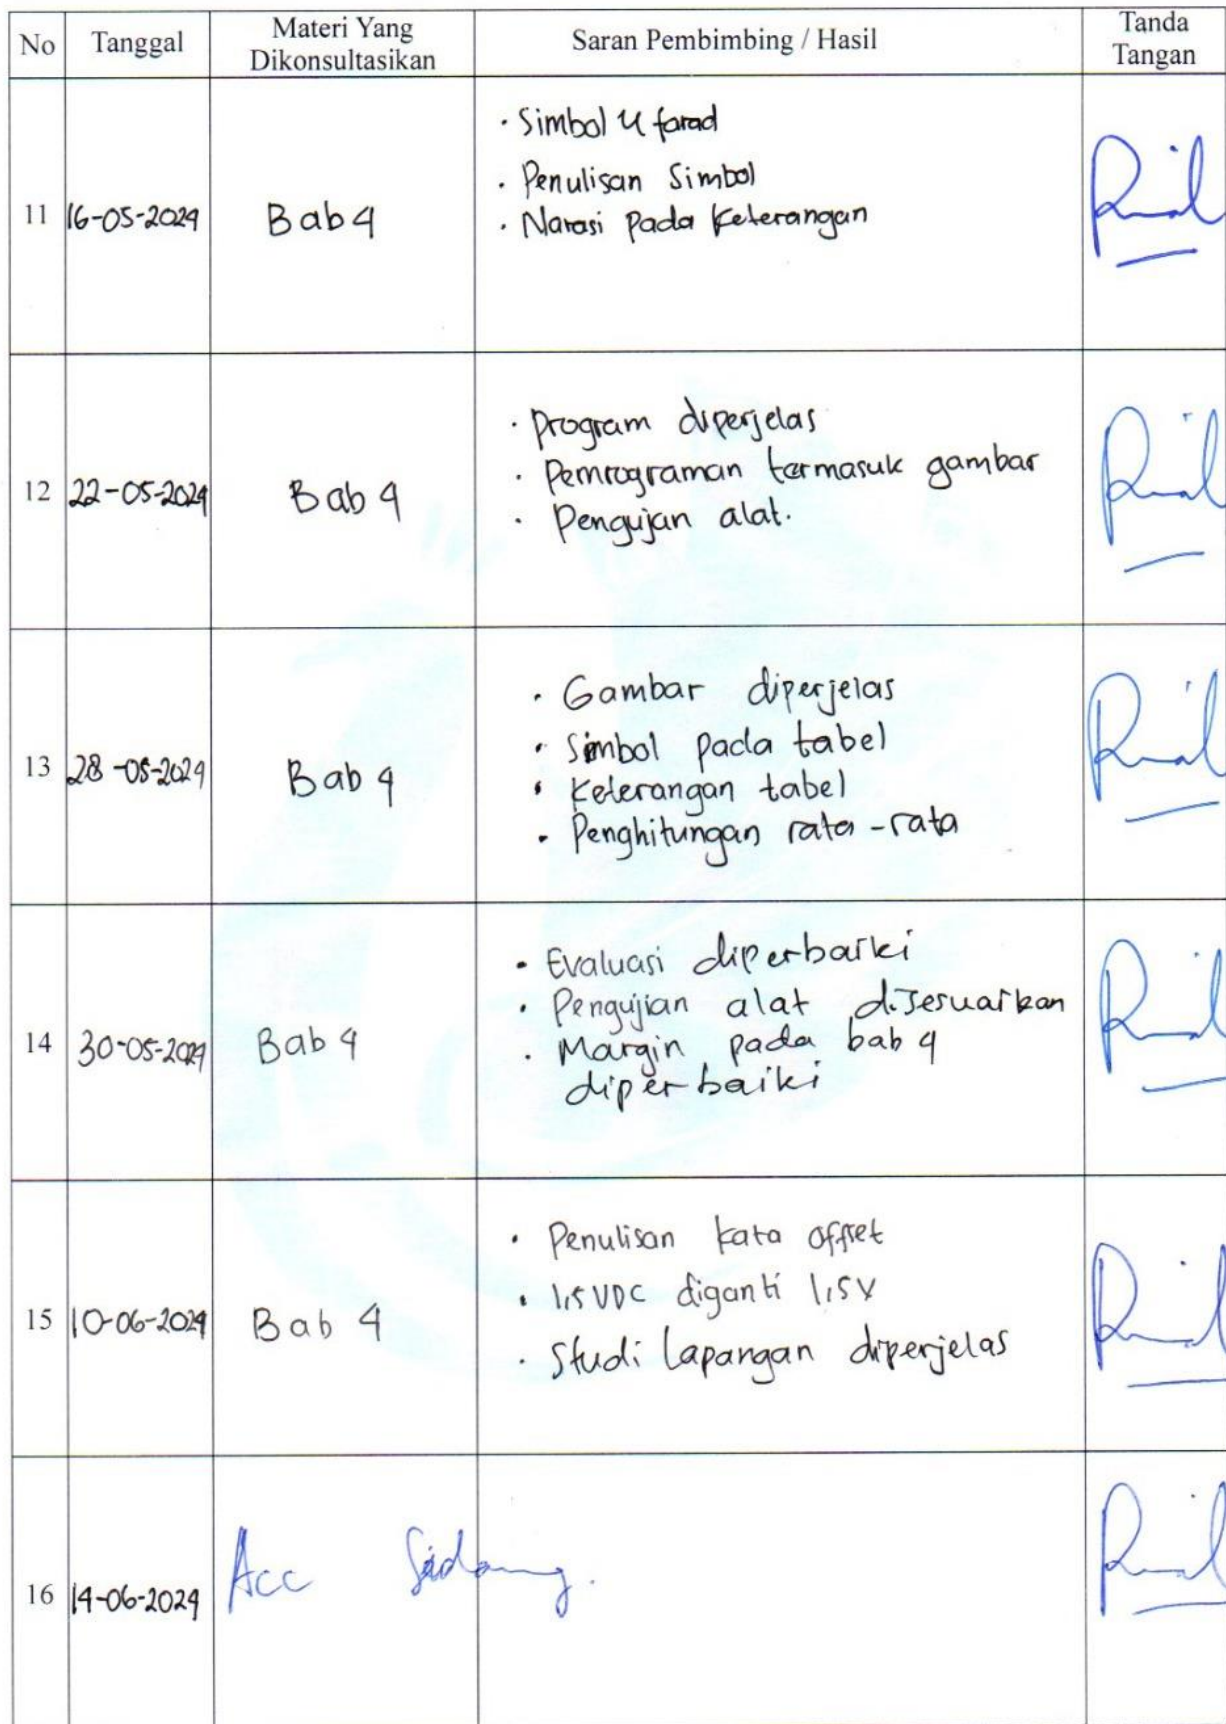 No Tanggal Materi Yang Dikonsultasikan Saran Pembimbing / Hasil Tanda Tangan
11 16-05-2024 Bab 4
· Simbol u farad
· Penulisan Simbol
· Narasi pada keterangan
12 22-05-2024 Bab 4
· Program diperjelas
· Pemrograman termasuk gambar
· Pengujan alat.
13 28-05-2024 Bab 4
· Gambar diperjelas
· Simbol pada tabel
· Keterangan tabel
· Penghitungan rata-rata
14 30-05-2024 Bab 4
· Evaluasi diperbaiki
· Pengujian alat disesuaikan
· Margin pada bab 4
diperbaiki
15 10-06-2024 Bab 4
· Penulisan kata offset
· 1,5 VDC diganti 1,5V
· Studi lapangan diperjelas
16 14-06-2024 Acc Sidang.